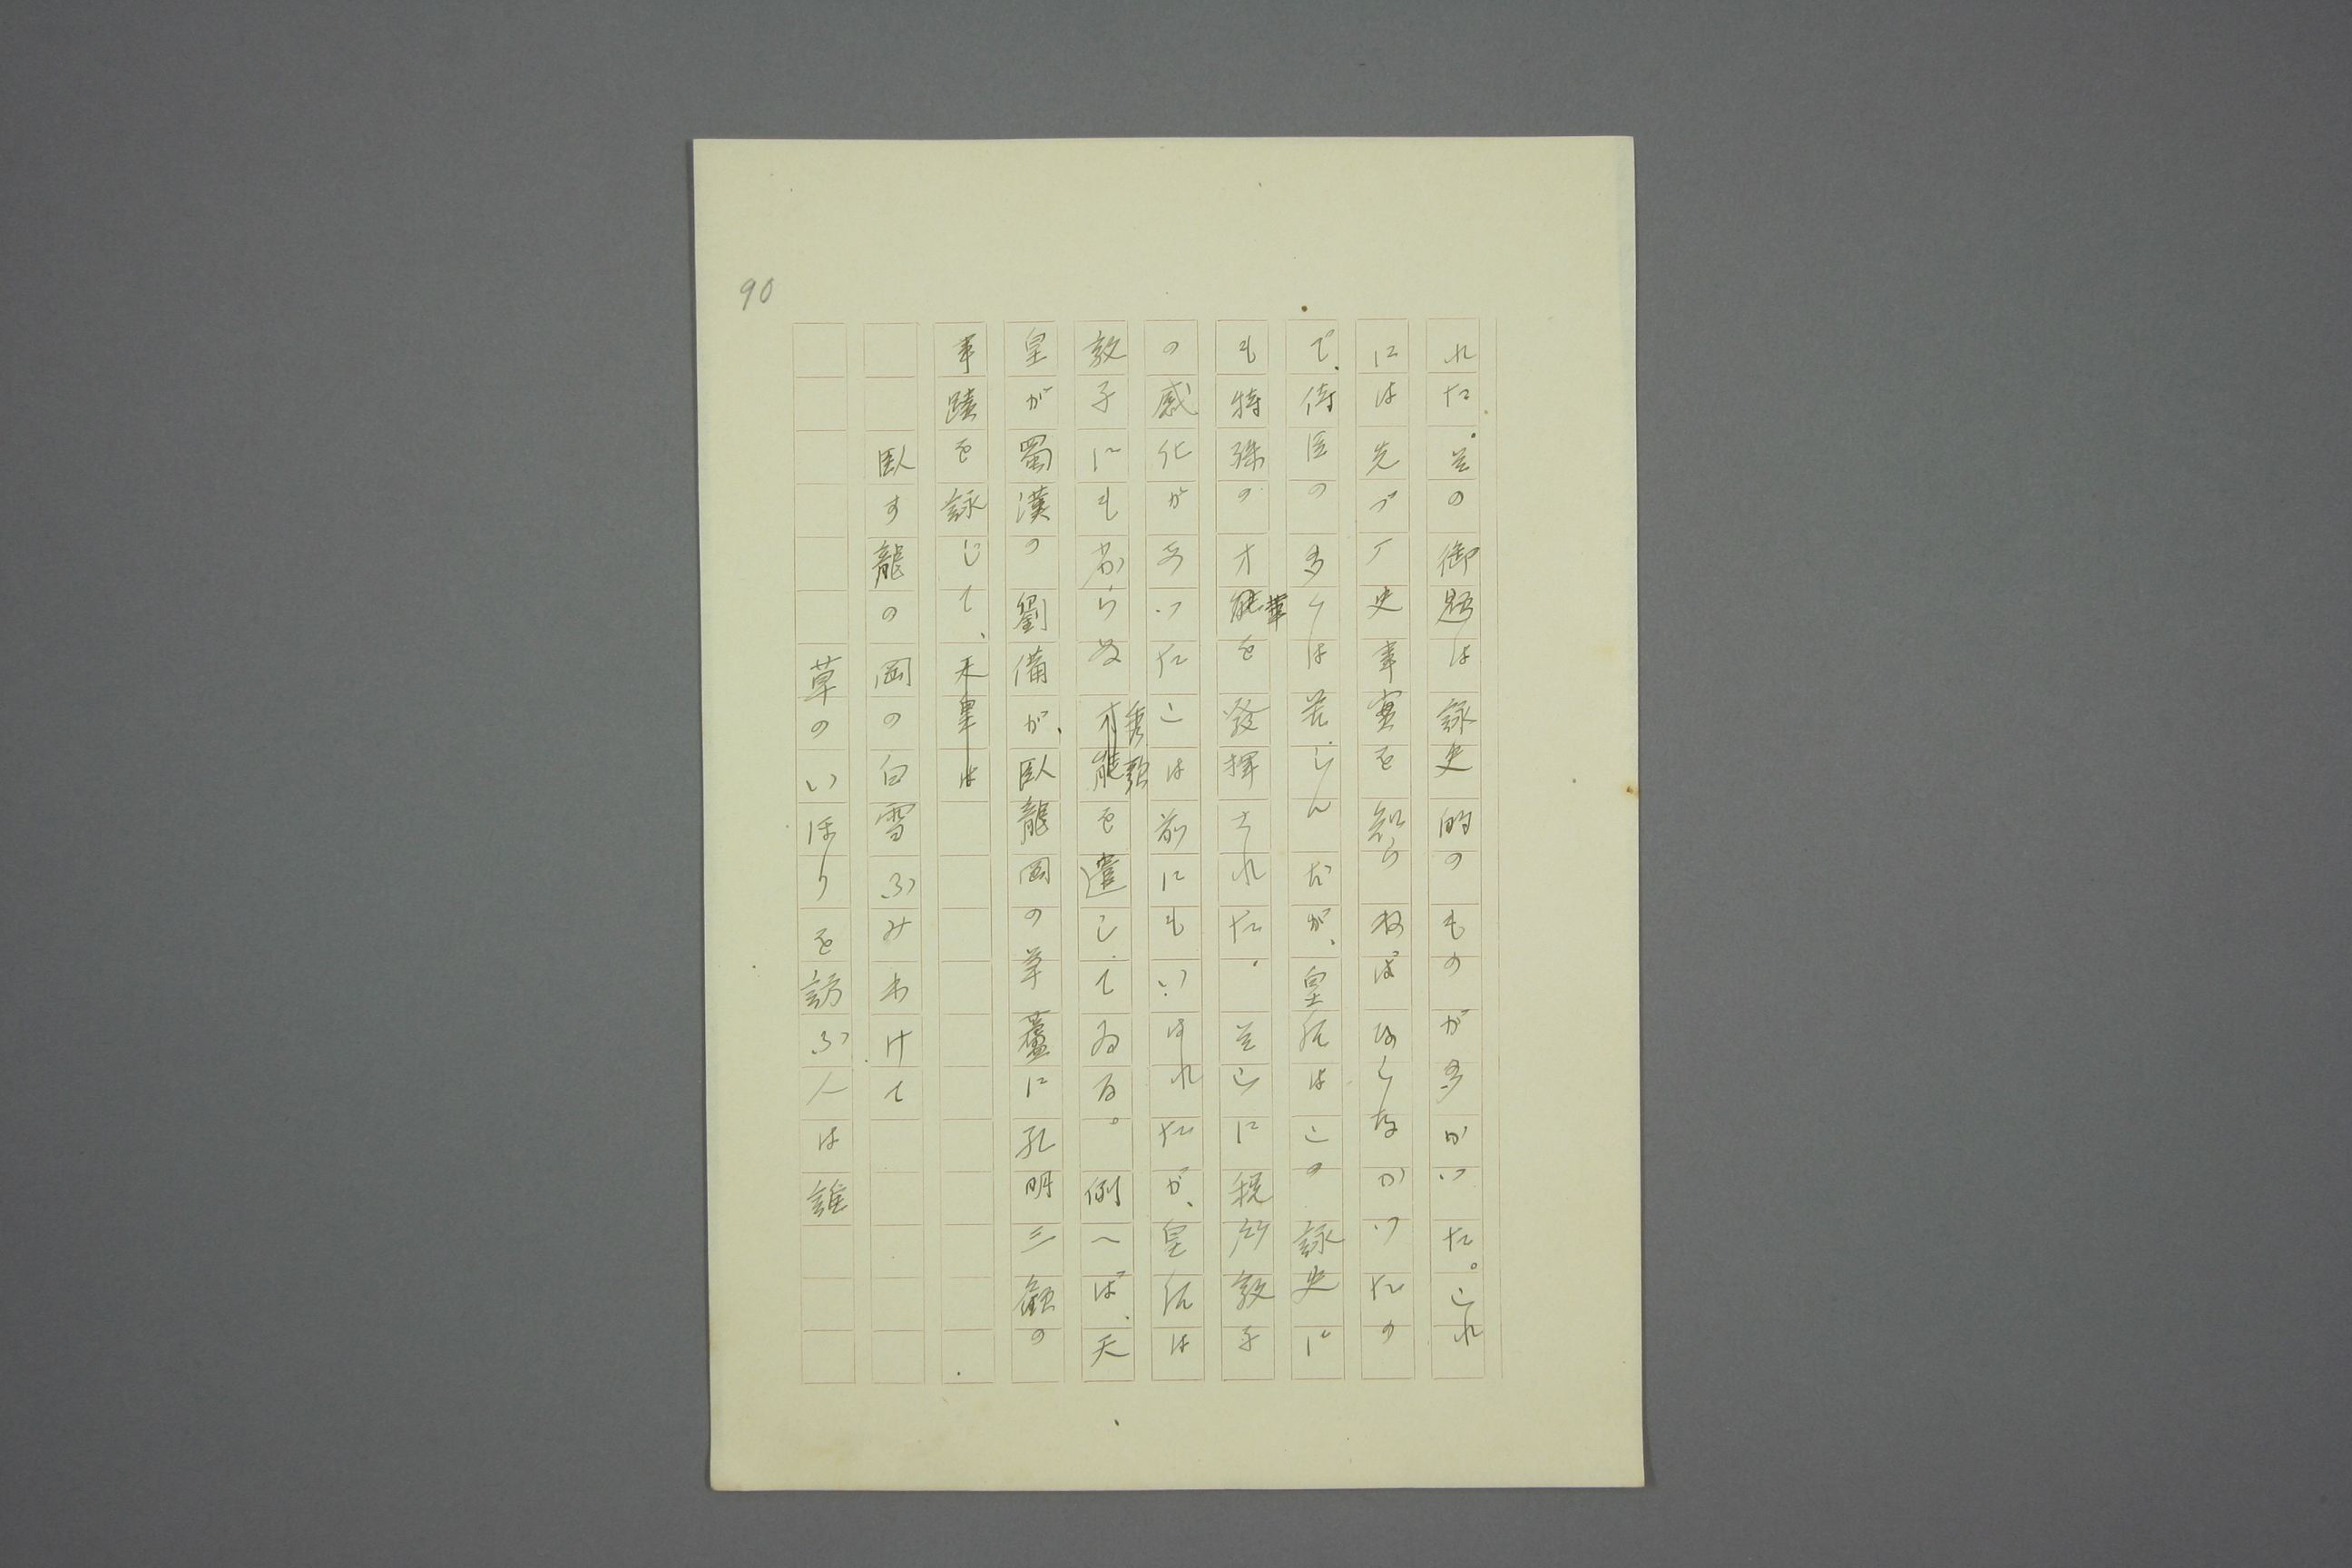 90
れた。並の御題は詠史的のものが多かつた。これ
には先づ厂史事実を知らねばならなかつたの
で、侍医の多くは苦しんだが、皇后はこの詠史に
も特殊の才華を発揮された。並らに税所敦子
の感化があつたことは前にもいはれたが、皇后は
敦子にも劣らぬ秀歌を遺してゐる。例へば、天
皇が蜀漢の劉備が、臥龍岡の草蘆に孔明三顧の
事蹟を詠じて、
臥す龍の岡の白雪ふみわけて
草のいほりを訪ふ人は誰